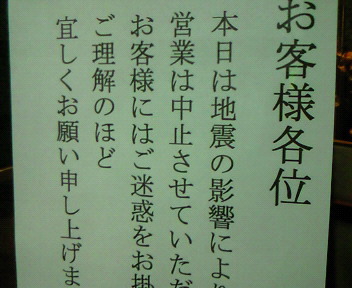 お客様各位
本日は地震の影響により
営業は中止させていただ
お客様にはご迷惑をお掛
ご理解のほど
宜しくお願い申し上げま